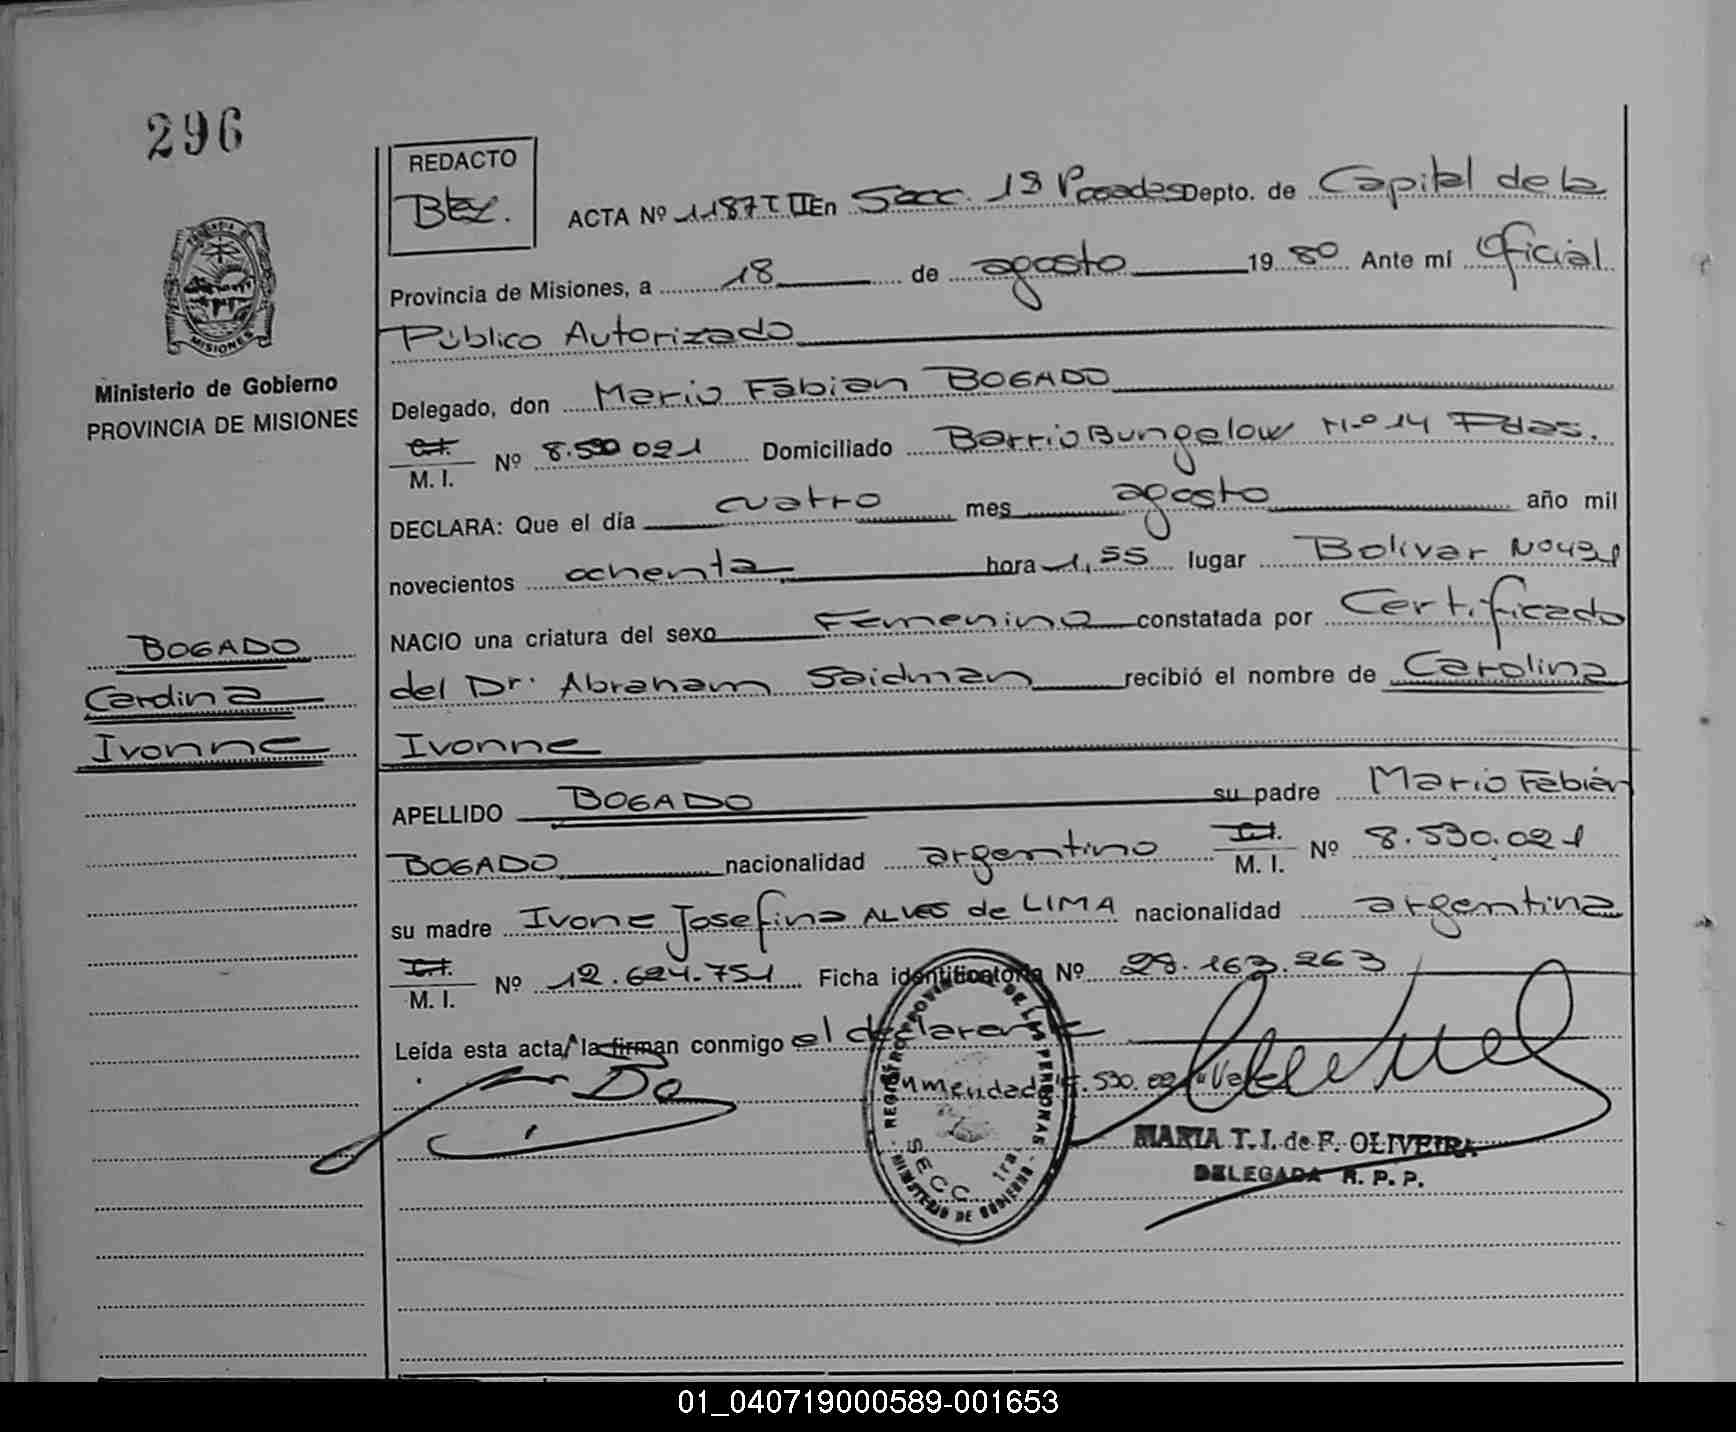 296
REDACTO
ACTA Nº 1187 T II En Secc. 1ª Posadas Depto. de Capital de la
Provincia de Misiones, a 18 de agosto 1980 Ante mi Oficial
Público Autorizado
MISIONES
Ministerio de Gobierno
PROVINCIA DE MISIONES
Delegado, don Mario Fabian BOGADO
C.I.
M. I. Nº 8.530 021 Domiciliado Barrio Bungalow N.º 14 Pdas.
DECLARA: Que el día cuatro mes agosto año mil
novecientos ochenta hora 1,55 lugar Bolivar
NACIO una criatura del sexo Femenino constatada por Certificado
del Dr. Abraham Saidman recibió el nombre de Carolina
Ivonne
BOGADO
Carolina
Ivonne
APELLIDO BOGADO su padre Mario Fabián
BOGADO nacionalidad argentino C.I.
M. I. Nº 8.530.021
su madre Ivone Josefina ALVES de LIMA nacionalidad argentina
C.I.
M. I. Nº 12.624.751 Ficha identificatoria Nº 28.163.263
Leída esta acta la firman conmigo el declarante
Enmendado 8.530.021 Vale
REGISTRO PROVINCIAL DE LAS PERSONAS
SECC. 1ra.
MINISTERIO DE GOBIERNO
MARIA T. I. de F. OLIVEIRA
DELEGADA R. P. P.
01_040719000589-001653